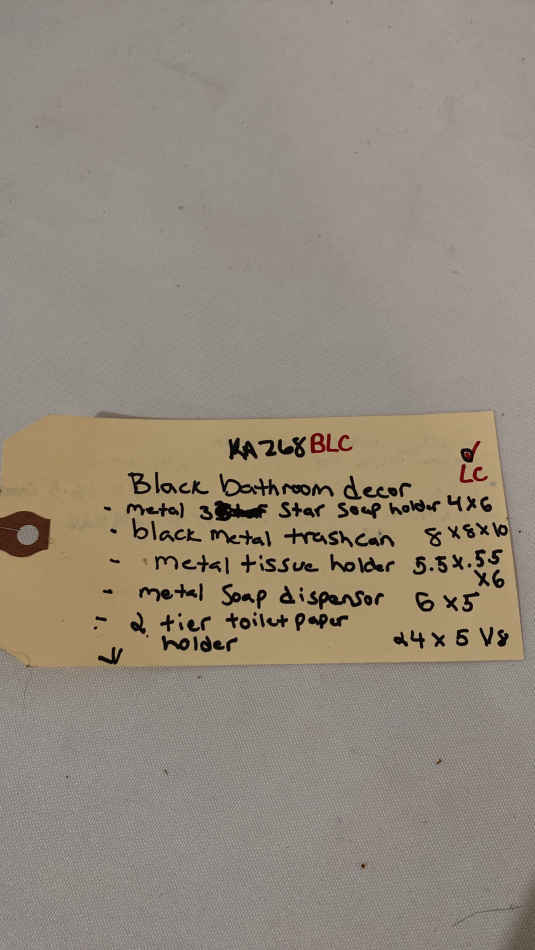 KA268 BLC
LC
Black bathroom decor
- metal 3 Star Soap holder 4x6
- black metal trashcan 8x8x10
- metal tissue holder 5.5x.55
x6
- metal Soap dispensor 6x5
- 2 tier toilet paper
holder 24x5